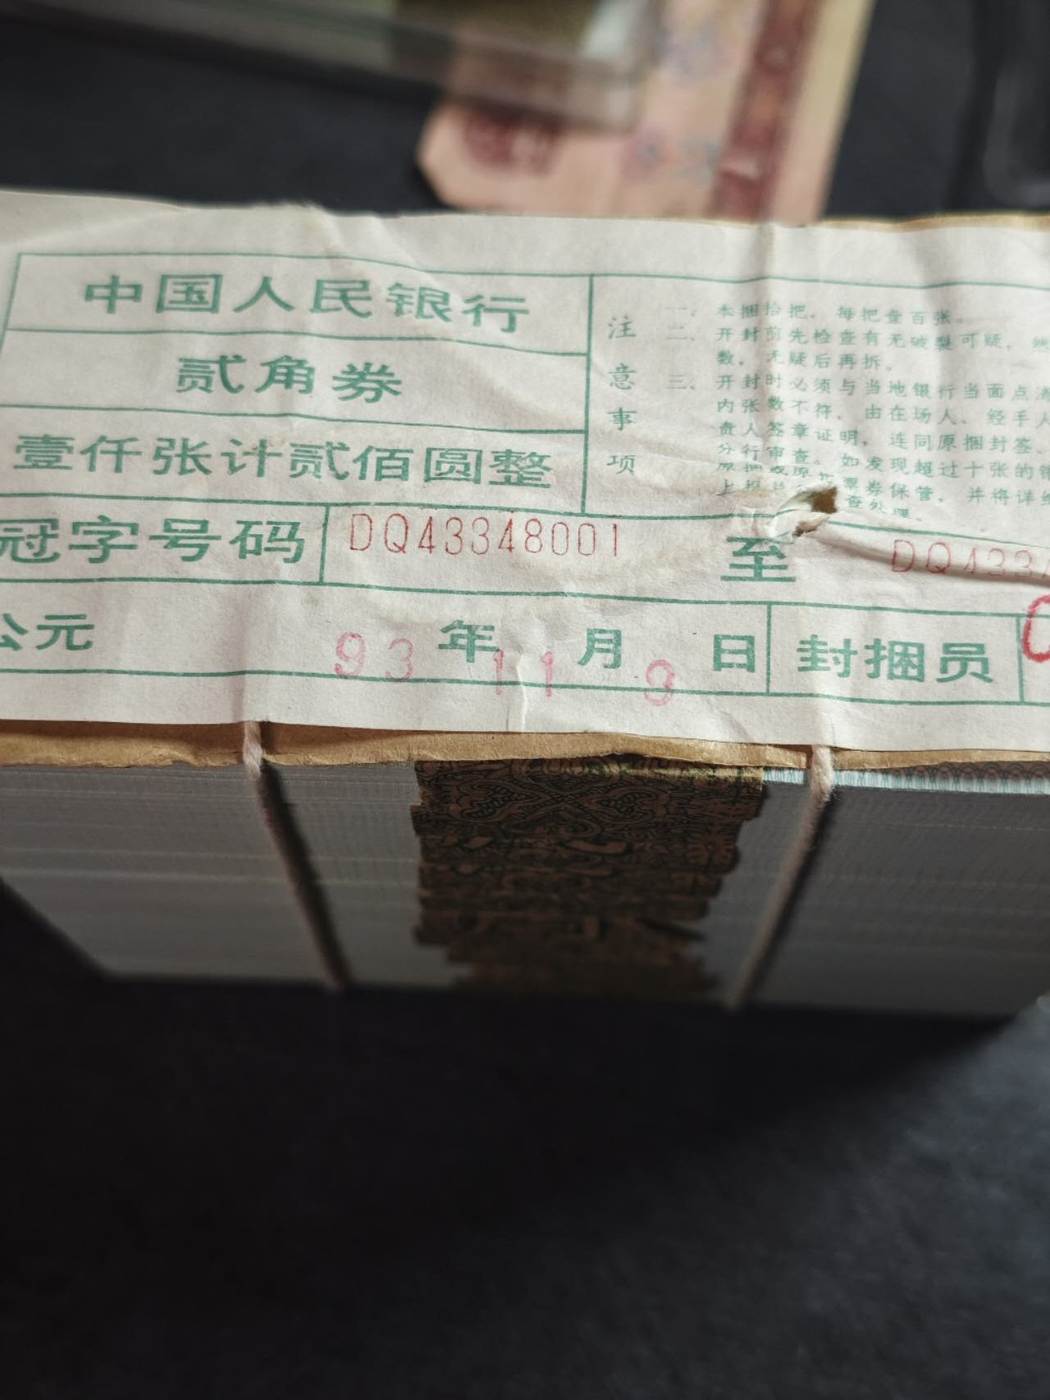 中国人民银行
贰角券
壹仟张计贰佰圆整
冠字号码 DQ43348001 至 DQ433
公元 93 年 11 月 9 日 封捆员
注意事项
一、本捆拾把，每把壹百张。
二、开封前先检查有无破裂可疑，
数，无疑后再拆。
三、开封时必须与当地银行当面点清
内张数不符，由在场人、经手人
责人签章证明，连同原捆封签、
分行审查。如发现超过十张的
票券保管，并将详
查处理。